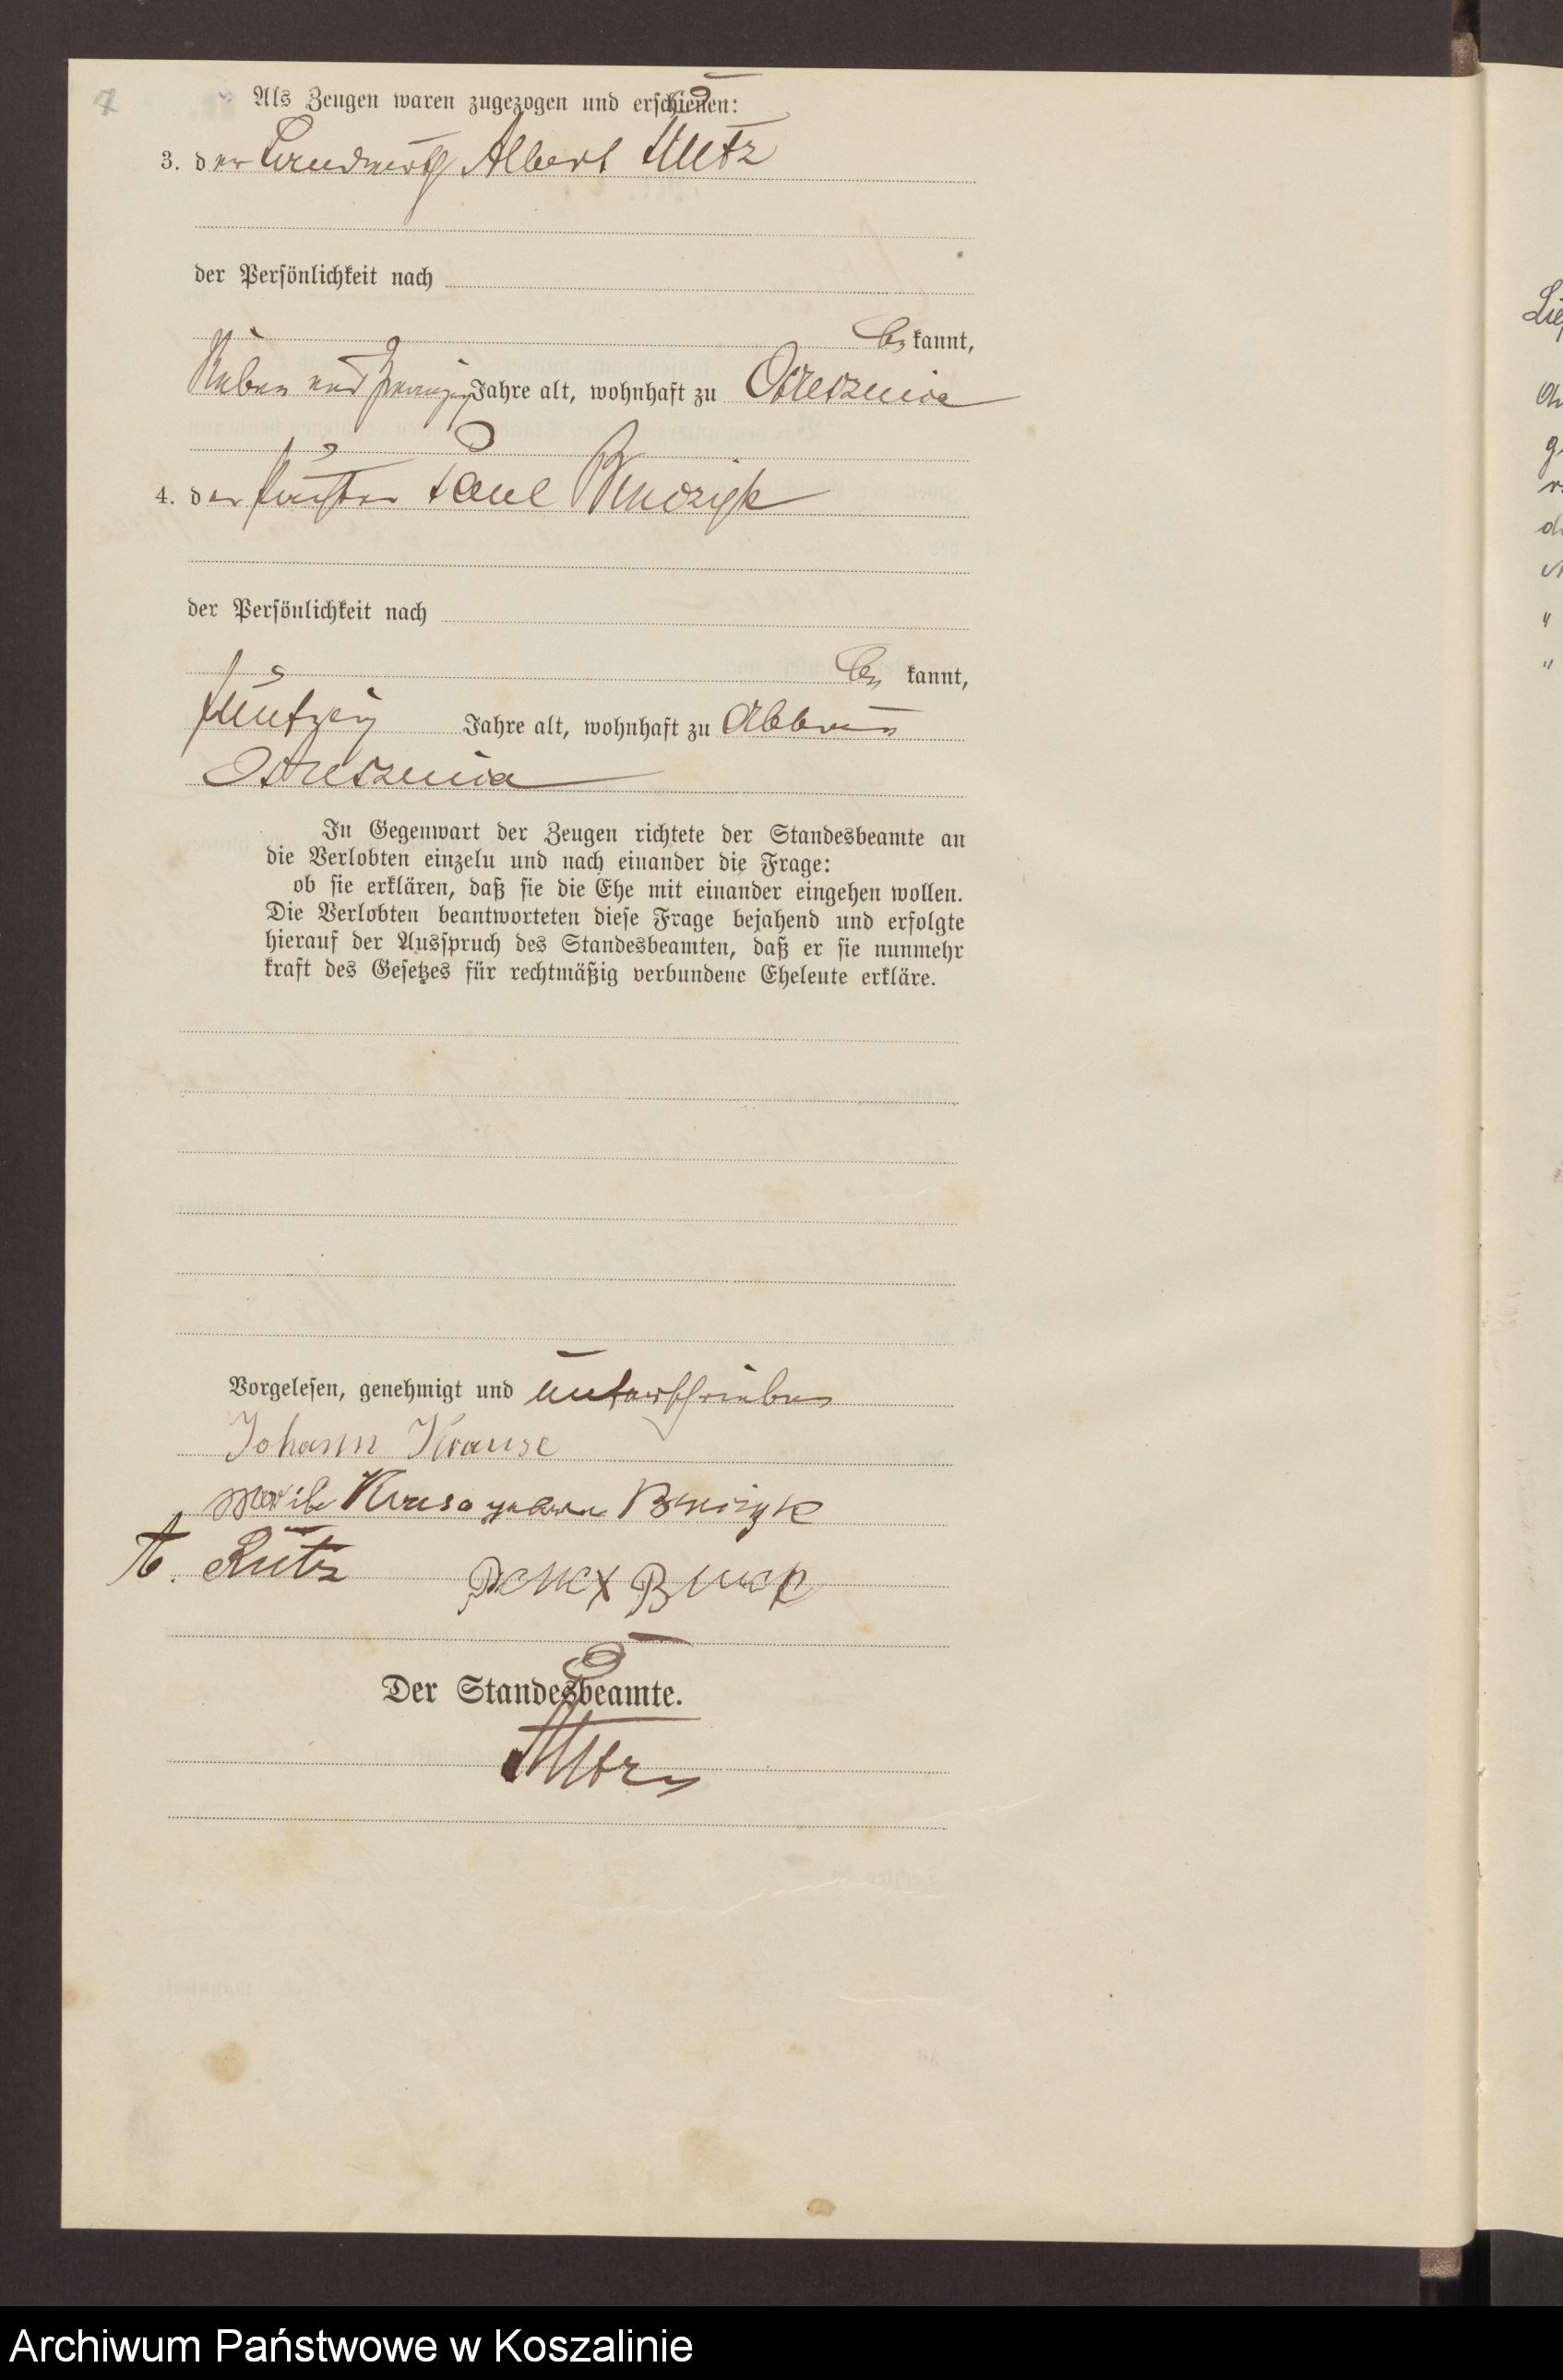 7
Als Zeugen waren zugezogen und erschienen:
3. der Landwirth Albert Rütz
der Persönlichkeit nach
be kannt,
Sieben und zwanzig Jahre alt, wohnhaft zu Ostreschnica
4. der Paul
der Persönlichkeit nach
be kannt,
fünfzig Jahre alt, wohnhaft zu Abbau
In Gegenwart der Zeugen richtete der Standesbeamte an
die Verlobten einzeln und nach einander die Frage:
ob sie erklären, daß sie die Ehe mit einander eingehen wollen.
Die Verlobten beantworteten diese Frage bejahend und erfolgte
hierauf der Ausspruch des Standesbeamten, daß er sie nunmehr
kraft des Gesetzes für rechtmäßig verbundene Eheleute erkläre.
Vorgelesen, genehmigt und unterschrieben
Johann Krause
geborne
A. Rütz
Der Standesbeamte.
Rütz
Archiwum Państwowe w Koszalinie